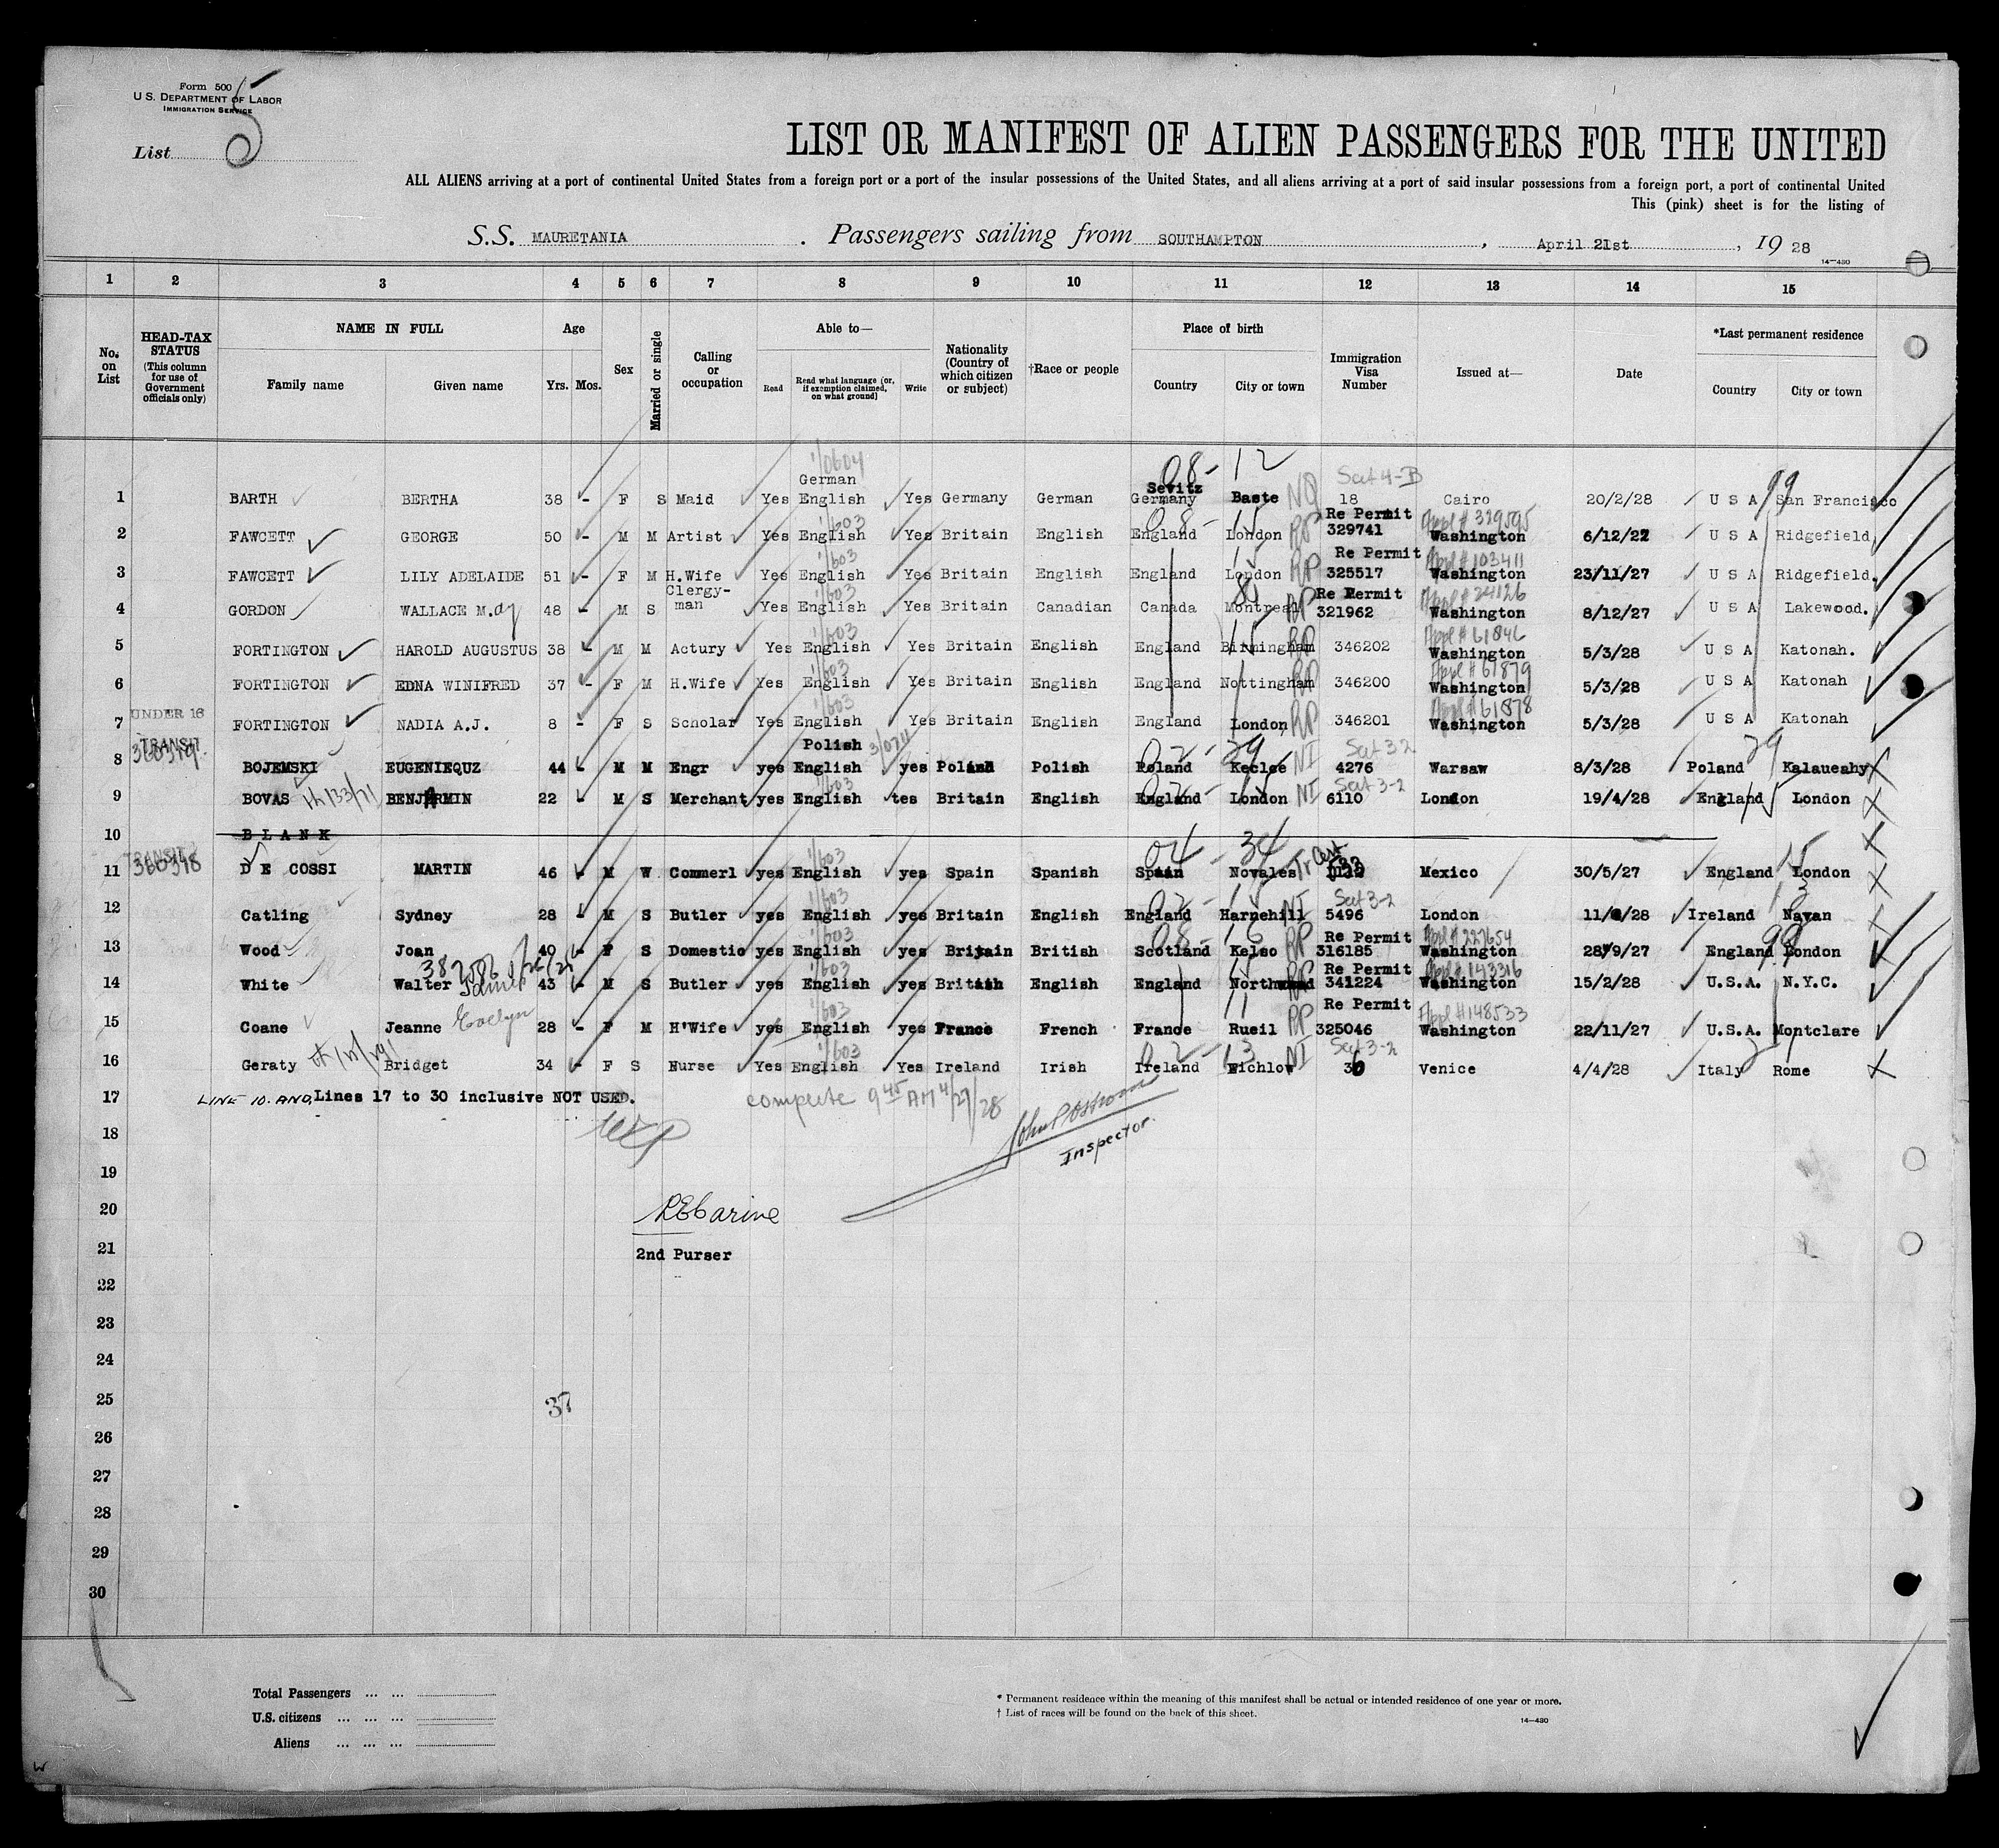 Form 500
U. S. DEPARTMENT OF LABOR
IMMIGRATION SERVICE
List 5
LIST OR MANIFEST OF ALIEN PASSENGERS FOR THE UNITED
ALL ALIENS arriving at a port of continental United States from a foreign port or a port of the insular possessions of the United States, and all aliens arriving at a port of said insular possessions from a foreign port, a port of continental United
This (pink) sheet is for the listing of
S.S. MAURETANIA . Passengers sailing from SOUTHAMPTON , April 21st , 19 28
14—430
1 2 3 4 5 6 7 8 9 10 11 12 13 14 15
No. on List
HEAD-TAX STATUS (This column for use of Government officials only)
NAME IN FULL
Family name Given name
Age
Yrs. Mos.
Sex
Married or single
Calling or occupation
Able to—
Read Read what language (or, if exemption claimed, on what ground) Write
Nationality (Country of which citizen or subject)
†Race or people
Place of birth
Country City or town
Immigration Visa Number
Issued at—
Date
*Last permanent residence
Country City or town
1/0604 08- 12 Sect 4-B 99
German Sevitz
1 BARTH BERTHA 38 - F S Maid Yes English Yes Germany German Germany Baste NQ 18 Cairo 20/2/28 U S A San Francisco
1/603 08- 15 Re Permit Appl # 329595
2 FAWCETT GEORGE 50 - M M Artist Yes English Yes Britain English England London RP 329741 Washington 6/12/27 U S A Ridgefield
1/603 15 Re Permit Appl # 103411
3 FAWCETT LILY ADELAIDE 51 - F M H.Wife Yes English Yes Britain English England London RP 325517 Washington 23/11/27 U S A Ridgefield.
1/603 Re Permit Appl # 24126
4 GORDON WALLACE M. 48 - M S Clergy-man Yes English Yes Britain Canadian Canada Montreal RP 321962 Washington 8/12/27 U S A Lakewood.
1/603 15 Appl # 61846
5 FORTINGTON HAROLD AUGUSTUS 38 - M M Actury Yes English Yes Britain English England Birmingham RP 346202 Washington 5/3/28 U S A Katonah.
1/603 Appl # 61879
6 FORTINGTON EDNA WINIFRED 37 - F M H.Wife Yes English Yes Britain English England Nottingham RP 346200 Washington 5/3/28 U S A Katonah
UNDER 16 1/603 Appl # 61878
7 FORTINGTON NADIA A.J. 8 - F S Scholar Yes English Yes Britain English England London RP 346201 Washington 5/3/28 U S A Katonah
TRANSIT Polish 3/0711 02- 29 Sect 3-2 29
8 BOJEMSKI EUGENIEQUZ 44 - M M Engr yes English yes Poland Polish Poland Keclse NI 4276 Warsaw 8/3/28 Poland Kalaueahy
1/603 02- 15 Sect 3-2
9 BOVAS BENJAMIN 22 - M S Merchant yes English tes Britain English England London NI 6110 London 19/4/28 England London
10 B L A N K
TRANSIT 360378 1/603 04- 34 Tr Cert 15
11 D E COSSI MARTIN 46 - M W Commerl yes English yes Spain Spanish Spain Novales Mexico 30/5/27 England London
1/603 02- 15 Sect 3-2 13
12 Catling Sydney 28 - M S Butler yes English yes Britain English England Harnehill NI 5496 London 11/4/28 Ireland Navan
1/603 08- 16 Re Permit Appl # 227654 99
13 Wood Joan 40 - F S Domestic yes English yes Britain British Scotland Kelso RP 316185 Washington 28/9/27 England London
1/603 15 Re Permit Appl # 143316
14 White Walter James 43 - M S Butler yes English yes British English England RP 341224 Washington 15/2/28 U.S.A. N.Y.C.
1/603 11 Re Permit Appl # 148533
15 Coane Jeanne Evelyn 28 - F M H'Wife yes English yes France French France Rueil RP 325046 Washington 22/11/27 U.S.A. Montclare
1/603 02- 13 Sect 3-2 21
16 Geraty Bridget 34 - F S Nurse Yes English Yes Ireland Irish Ireland Wichlow NI 30 Venice 4/4/28 Italy Rome
17 LINE 10. AND Lines 17 to 30 inclusive NOT USED. complete 9 45 AM 4/27/28
John P Osstrom
Inspector.
18
19
20 R E Carine
21 2nd Purser
22
23
24
25 37
26
27
28
29
30
Total Passengers ... ...
U.S. citizens ... ... ...
Aliens ... ... ...
* Permanent residence within the meaning of this manifest shall be actual or intended residence of one year or more.
† List of races will be found on the back of this sheet.
14—430